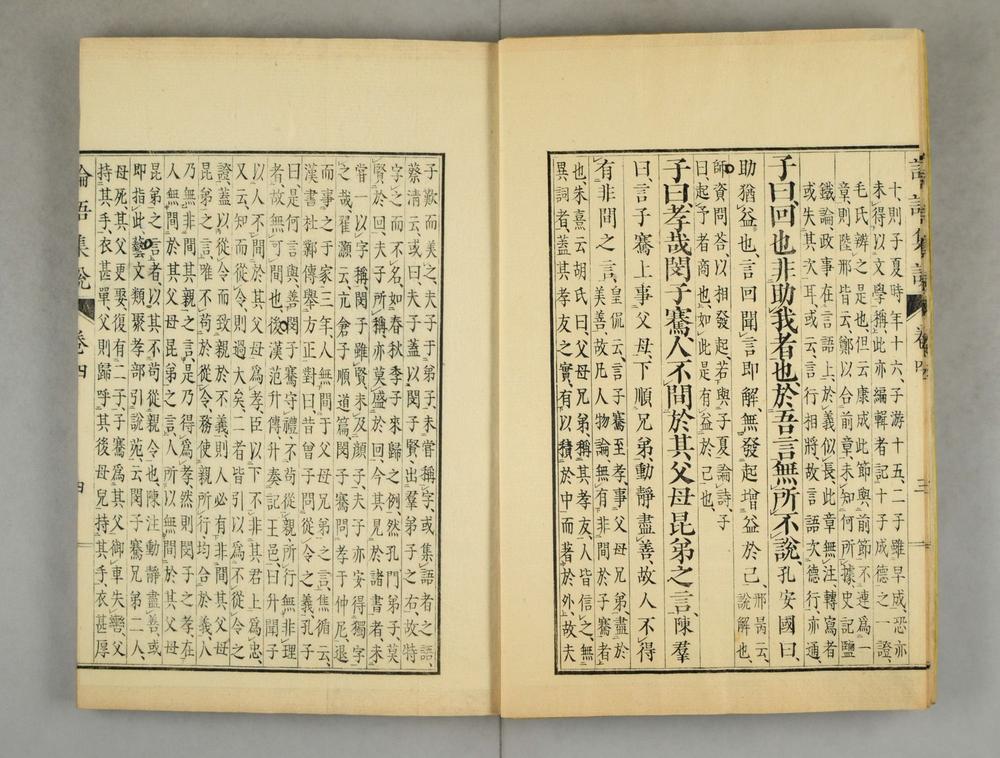 十、則子夏時年十六、子游十五、二子雖早成、恐亦
未得以文學稱、此亦編輯者記十子成德之一證、
毛氏辨之是也、但云康成此節與前節不連爲一
章、則陸邢皆云、鄭以合前章、未知何所據、史記鹽
鐵論、政事在言語上、於義似長、此章無注、轉寫者
或失其次耳、或云、言行相將、故言語次德行、亦通、
子曰、回也非助我者也、於吾言無所不說、孔安國曰、
助猶益也、言回聞言即解、無發起增益於己、邢昺云、說解也、
師資問答、以相發起、若與子夏論詩、子
曰、起予者商也、如此是有益於己也、
子曰、孝哉閔子騫、人不間於其父母昆弟之言、陳羣
曰、言子騫上事父母、下順兄弟、動靜盡善、故人不得
有非間之言、皇侃云、言子騫至孝、事父母兄弟、盡於
美善、故凡人物論、無有非間之言於子騫者
也、朱熹云、胡氏曰、父母兄弟稱其孝友、人皆信之、無
異詞者、蓋其孝友之實、有以積於中而著於外、故夫
論語集說 卷四 三
子歎而美之、或曰、夫子于弟子、未嘗稱字、或集語者之語、
蔡清云、或曰、夫子蓋以閔子賢出羣弟子之右、故特
字之而不名、如春秋季子來歸之例、然孔門弟子、莫
賢於回、夫子所稱、亦莫盛於回、今其見於諸書者、未
嘗一以字稱、閔子雖賢、未及顏子、夫子亦安得獨字
之哉、翟灝云、亢倉子順道篇、閔子騫問孝于仲尼、退
而事之于家三年、人無間于父母兄弟之言、焦循云、
漢書杜鄴傳、舉方正對曰、昔曾子問從令之義、孔子
曰、是何言與、善閔子騫守禮、不苟從親、所行無非理
者、故無可間也、後漢范升傳、升奏記王邑曰、升聞子
以人不間於其父母爲孝、臣以下不非其君上爲忠、
又云、知而從令、則過大矣、二者皆引以爲不從令之
證、蓋以從令而致親於不義、則人必有非間其父母
昆弟之言、惟不苟於從令、務使親所行均合於義、人
乃無非間其親之言、是乃得爲孝、然則閔子之孝、在
人無間於其父母昆弟之言、人所以無間於其父母
昆弟之言者、以其不苟從親令也、陳注動靜盡善、或
即指此、藝文類聚孝部引說苑云、閔子騫兄弟二人、
母死、其父更娶、復有二子、子騫爲其父御車、失轡、父
持其手、衣甚單、父則歸、呼其後母兒、持其手、衣甚厚
論語集說 卷四 四